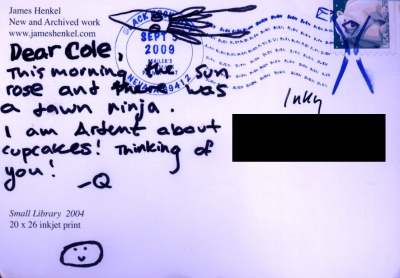 James Henkel
New and Archived work
www.jameshenkel.com
SEPT 3
2009
MAILER'S
89412
Dear Cole,
This morning the sun
rose and there was
a dawn ninja.
I am Ardent about
cupcakes! Thinking of
you!
-Q
Inky
Small Library 2004
20 x 26 inkjet print